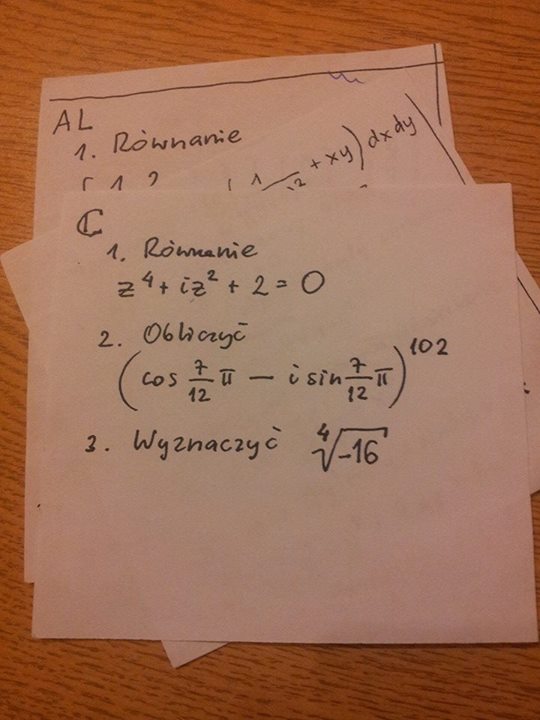 AL
1. Równanie
+ xy) dx dy
ℂ
1. Równanie
z⁴ + iz² + 2 = 0
2. Obliczyć
(cos 7/12 π − i sin 7/12 π)¹⁰²
3. Wyznaczyć ∜-16